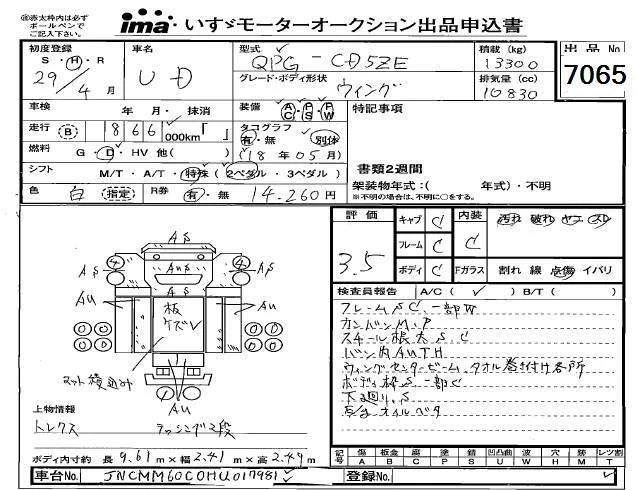 ※赤太枠内は必ずボールペンでご記入ください。
ima いすゞモーターオークション出品申込書
初度登録 S・H・R 29/4月
車名 UD
型式 QPG-CD5ZE
積載(kg) 13300
出品No 7065
グレード・ボディ形状 ウィング
排気量(cc) 10830
車検 年 月・抹消
装備 AC PS PW
特記事項
走行 B 1866 000km「 」
タコグラフ 有・無 別体
(18年05月)
燃料 G・D・HV 他( )
書類2週間
シフト M/T・A/T・特殊(2ペダル・3ペダル)
架装物年式:( 年式)・不明
※不明の場合は、不明に○をする。
色 白(指定) R券 有・無 14,260円
評価 3.5
キャブ C
フレーム C
ボディ C
内装 C
汚れ 破れ ヤニ スレ
Fガラス 割れ 線 点傷 イバリ
検査員報告 A/C( ✓ ) B/T( )
フレームSC、一部W
カンバンM.P
スチール根太S.C
バン内AUTH
ウィングセンタービーム、タオル巻き付け各所
ボディ枠S一部C
下廻り.S
オイルベタ
AS
AS 4 AS 4 AS
AS
AU AU
板ケズレ
マット積込み
AU
上物情報
トレクス ラッシング2段
ボディ内寸約 長9.61m×幅2.41m×高2.49m
記号 傷A 板金B 腐C 塗P 錆S 凹凸曲U 割W 歪Y 熱H 不良M レツ割T
車台No. JNCMM60C0HU017981
登録No.